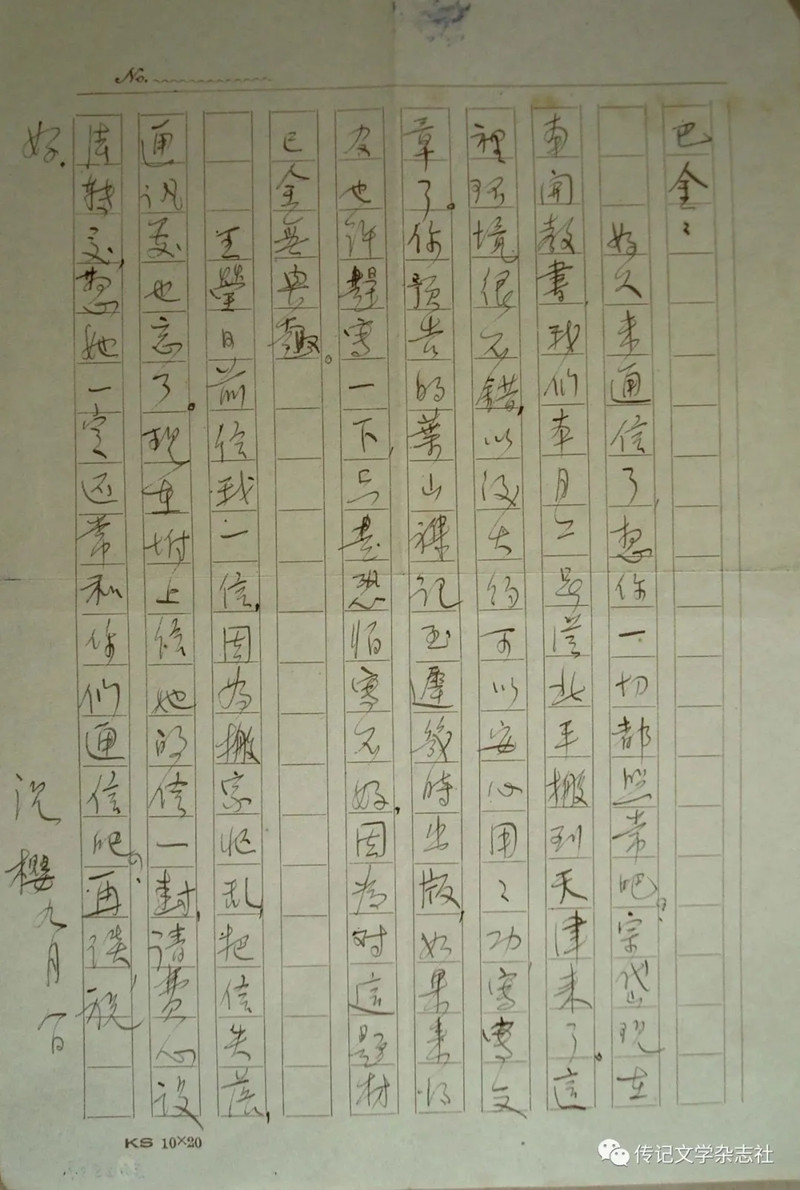 No.
巴金:
好久未通信了,想你一切都照常吧。宗岱现在
南开教书,我们本月二号从北平搬到天津来了。这
裡环境很不错,以后大约可以安心用〻功写写文
章了。你预告的叶山杂记至迟几时出版,如果来得
及也许赶写一下,只是恐怕写不好,因为对这题材
已全无兴趣。
王莹日前给我一信,因为搬家忙乱,把信失落,
通讯处也忘了。现在附上给她的信一封,请费心设
法转交,想她一定还常和你们通信吧。再谈,祝
好。
沉樱九月
KS 10×20
传记文学杂志社